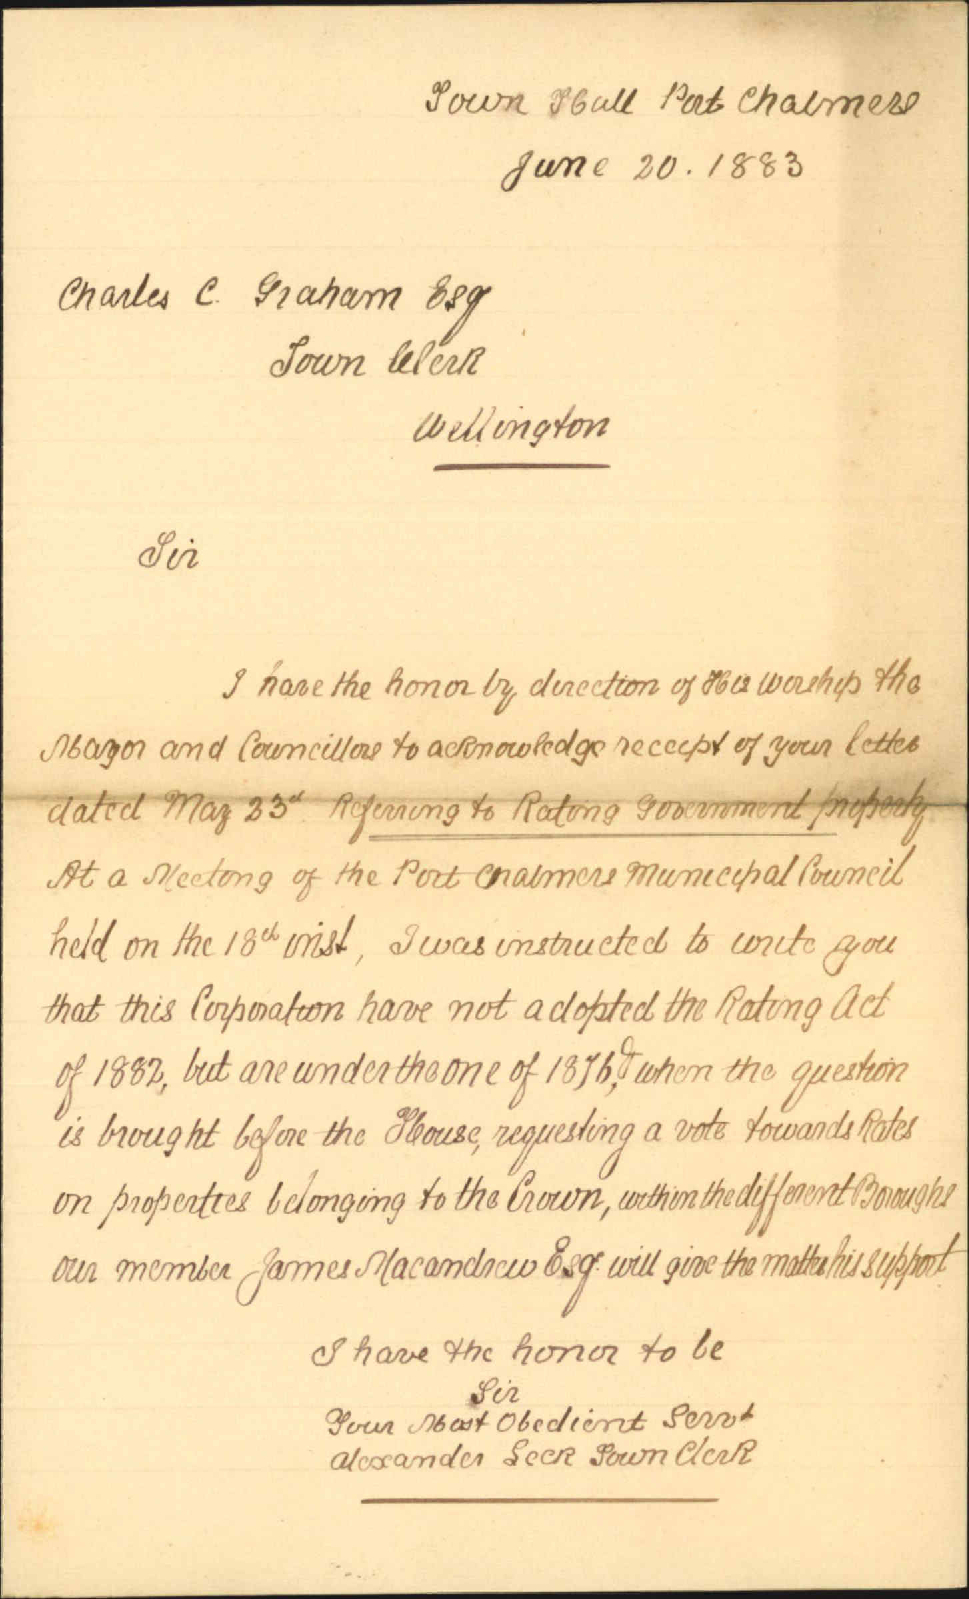 Town Hall Port Chalmers
June 20. 1883
Charles C. Graham Esq
Town Clerk
Wellington
Sir
I have the honor by direction of His Worship the
Mayor and Councillors to acknowledge receipt of your letter
dated May 23d Referring to Rating Government property
At a Meeting of the Port Chalmers Municipal Council
held on the 18th inst, I was instructed to write you
that this Corporation have not adopted the Rating Act
of 1882, but are under the one of 1876, & when the question
is brought before the House, requesting a vote towards Rates
on properties belonging to the Crown, within the different Boroughs
our member James Macandrew Esq. will give the matter his support
I have the honor to be
Sir
Your Most Obedient Servt
Alexander Leck Town Clerk